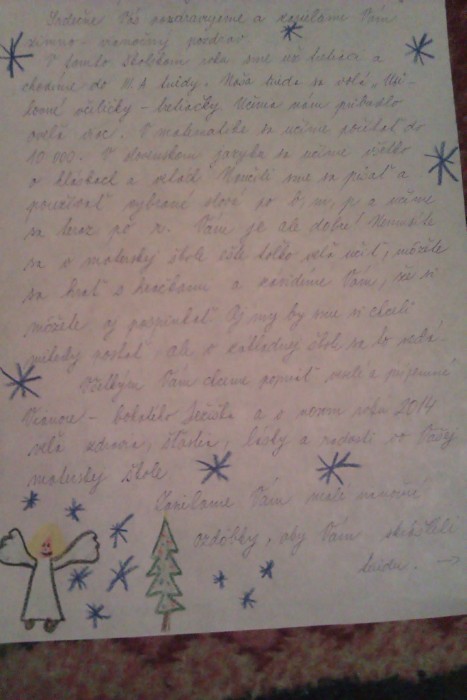 Srdečne Vás pozdravujeme a posielame Vám
zimno - vianočný pozdrav
V tomto školskom roku sme už tretiaci a
chodíme do III. A triedy. Naša trieda sa volá „Usi-
lovné včeličky - tretiačky. Učiva nám pribudlo
oveľa viac. V matematike sa učíme počítať do
10 000. V slovenskom jazyku sa učíme všetko
o hláskach a vetách. Naučili sme sa písať a
používať vybrané slová po b, m, p a učíme
sa teraz po r. Vám je ale dobre! Nemusíte
sa v materskej škole ešte toľko veľa učiť, môžete
sa hrať s hračkami a závidíme Vám, že si
môžete aj pospinkať. Aj my by sme si chceli
niekedy pospať, ale v základnej škole sa to nedá.
Všetkým Vám chceme popriať veselé a príjemné
Vianoce - bohatého Ježiška a v novom roku 2014
veľa zdravia, šťastia, lásky a radosti vo Vašej
materskej škole
Posielame Vám malé vianočné
ozdôbky, aby Vám skrášlili
triedu. →